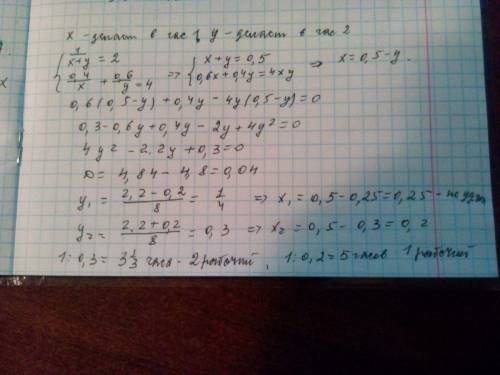 x - делает в час 1, y - делает в час 2
{ 1/(x+y) = 2
{ 0,4/x + 0,6/y = 4 => { x+y = 0,5
{ 0,6x+0,4y = 4xy => x = 0,5-y.
0,6(0,5-y)+0,4y-4y(0,5-y)=0
0,3-0,6y+0,4y-2y+4y²=0
4y²-2.2y+0,3=0
D = 4,84-4,8=0,04
y₁ = (2,2-0,2)/8 = 1/4 => x₁ = 0,5-0,25=0,25 - не удвл
y₂ = (2,2+0,2)/8 = 0,3 => x₂ = 0,5-0,3=0,2
1:0,3 = 3 1/3 часа - 2 рабочий, 1:0,2=5 часов 1 рабочий